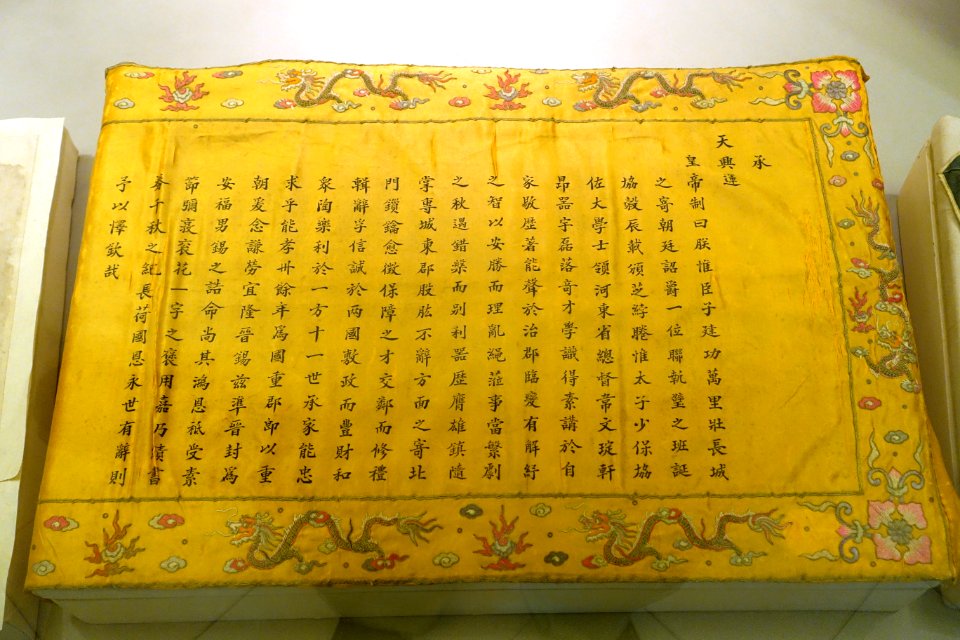 承
天興運
皇帝制曰朕惟臣子建功萬里壯長城
之寄朝廷詔爵一位聯執璧之班誕
協穀辰載頒芝綍睠惟太子少保協
佐大學士領河東省總督常文琔軒
昂器宇磊落奇才學識得素講於自
家敭歷著能聲於治郡臨變有解紓
之智以安勝而理亂繩蒞事當繁劇
之秋遇錯槃而别利器歷膺雄鎮隨
掌專城東郡股肱不辭方面之寄北
門鎖鑰愈徵保障之才交鄰而修禮
輯辭孚信誠於两國敷政而豐財和
衆洵樂利於一方十一世承家能忠
求乎能孝卅餘年爲國重郡即以重
朝爰念謙勞宜隆晉錫茲準晉封爲
安福男錫之誥命尚其鴻恩祗受素
節彌衮花一字之褒用嘉乃績書
券千秋之紀長荷國恩永世有辭則
予以懌欽哉